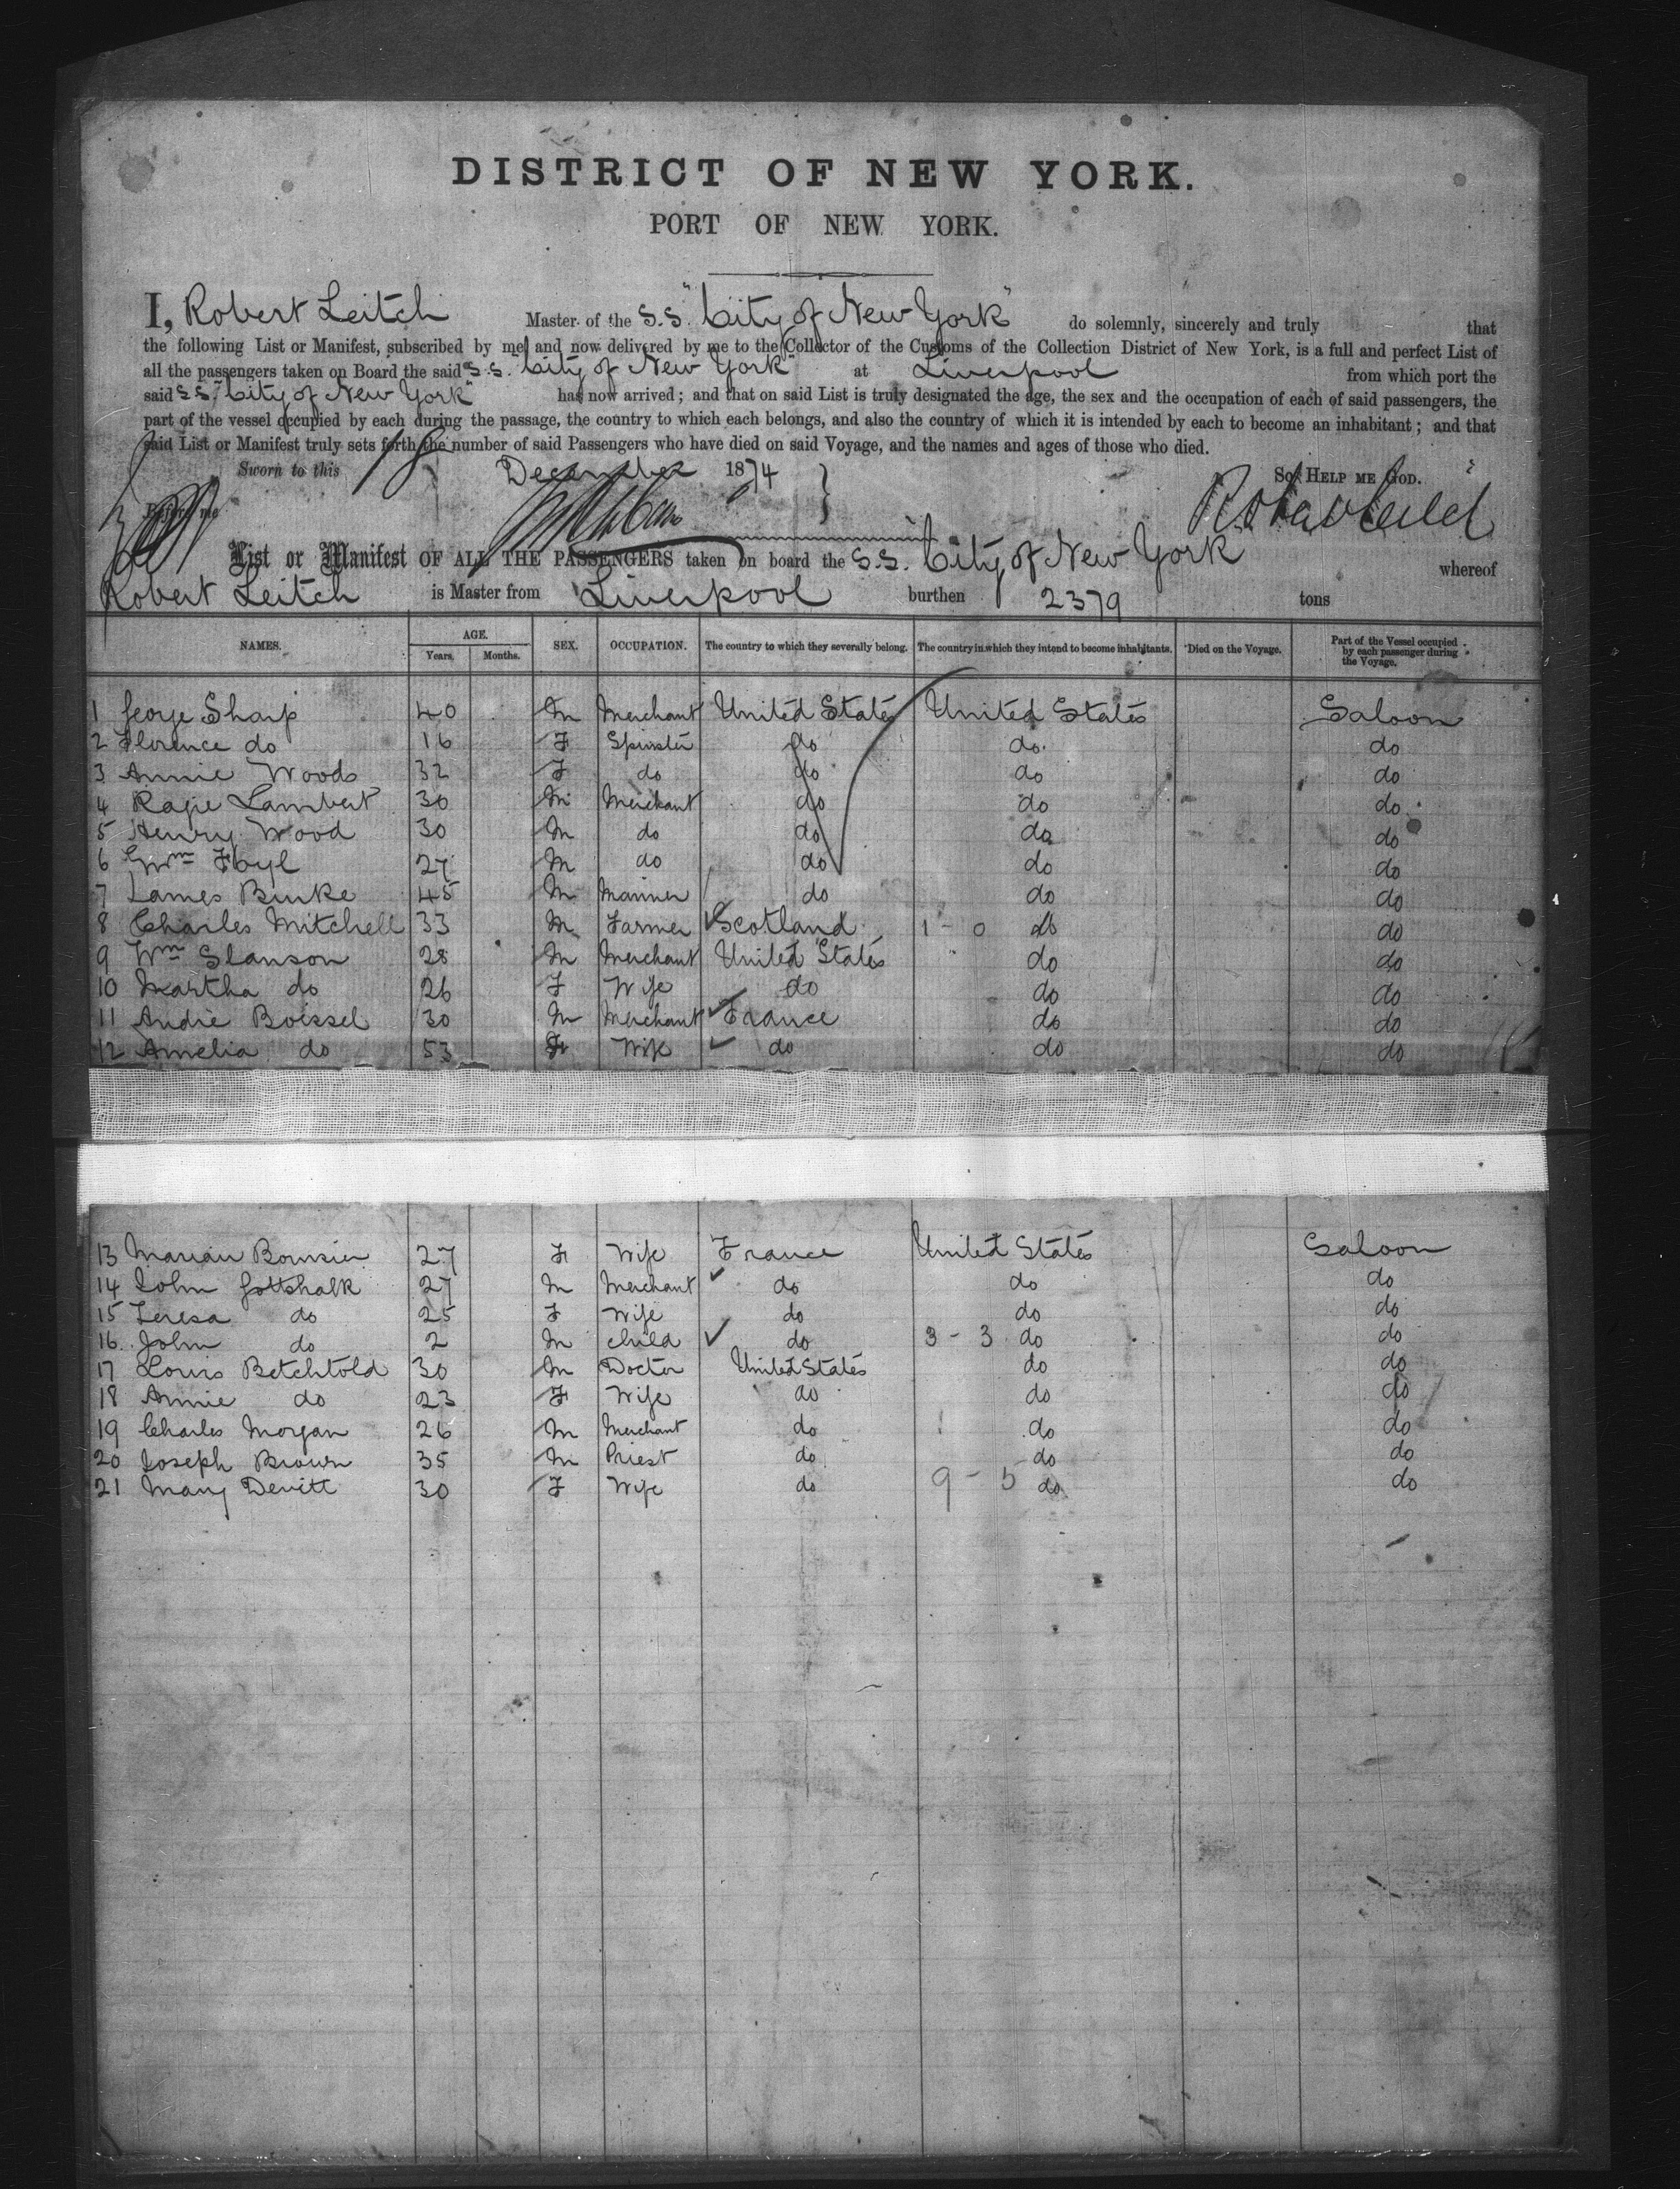 DISTRICT OF NEW YORK.
PORT OF NEW YORK.
I, Robert Leitch Master of the S.S. "City of New York" do solemnly, sincerely and truly that
the following List or Manifest, subscribed by me and now delivered by me to the Collector of the Customs of the Collection District of New York, is a full and perfect List of
all the passengers taken on Board the said S.S. "City of New York" at Liverpool from which port the
said S.S. "City of New York" has now arrived; and that on said List is truly designated the age, the sex and the occupation of each of said passengers, the
part of the vessel occupied by each during the passage, the country to which each belongs, and also the country of which it is intended by each to become an inhabitant; and that
said List or Manifest truly sets forth the number of said Passengers who have died on said Voyage, and the names and ages of those who died.
Sworn to this 18 December 1874 SO HELP ME GOD.
Before me
List or Manifest OF ALL THE PASSENGERS taken on board the S.S. City of New York whereof
Robert Leitch is Master from Liverpool burthen 2379 tons
NAMES. AGE. Years. Months. SEX. OCCUPATION. The country to which they severally belong. The country in which they intend to become inhabitants. Died on the Voyage. Part of the Vessel occupied by each passenger during the Voyage.
1 George Sharp 40 M Merchant United States United States Saloon
2 Florence do 16 F Spinster do do do
3 Annie Woods 32 F do do do do
4 Lambert 30 M Merchant do do do
5 Henry Wood 30 M do do do do
6 Wm Foyl 27 M do do do do
7 James Burke 45 M Mariner do do do
8 Charles Mitchell 33 M Farmer Scotland 1 - 0 do do
9 Wm Slanson 28 M Merchant United States do do
10 Martha do 26 F Wife do do do
11 Andre Boissel 30 M Merchant France do do
12 Amelia do 53 F Wife do do do
13 Marian 27 F Wife France United States Saloon
14 John Gottshalk 27 M Merchant do do do
15 Teresa do 25 F Wife do do do
16 John do 2 M Child do 3 - 3 do do
17 Louis Betchtold 30 M Doctor United States do do
18 Annie do 23 F Wife do do do
19 Charles Morgan 26 M Merchant do do do
20 Joseph Brown 35 M Priest do do do
21 Mary Devitt 30 F Wife do 9 - 5 do do